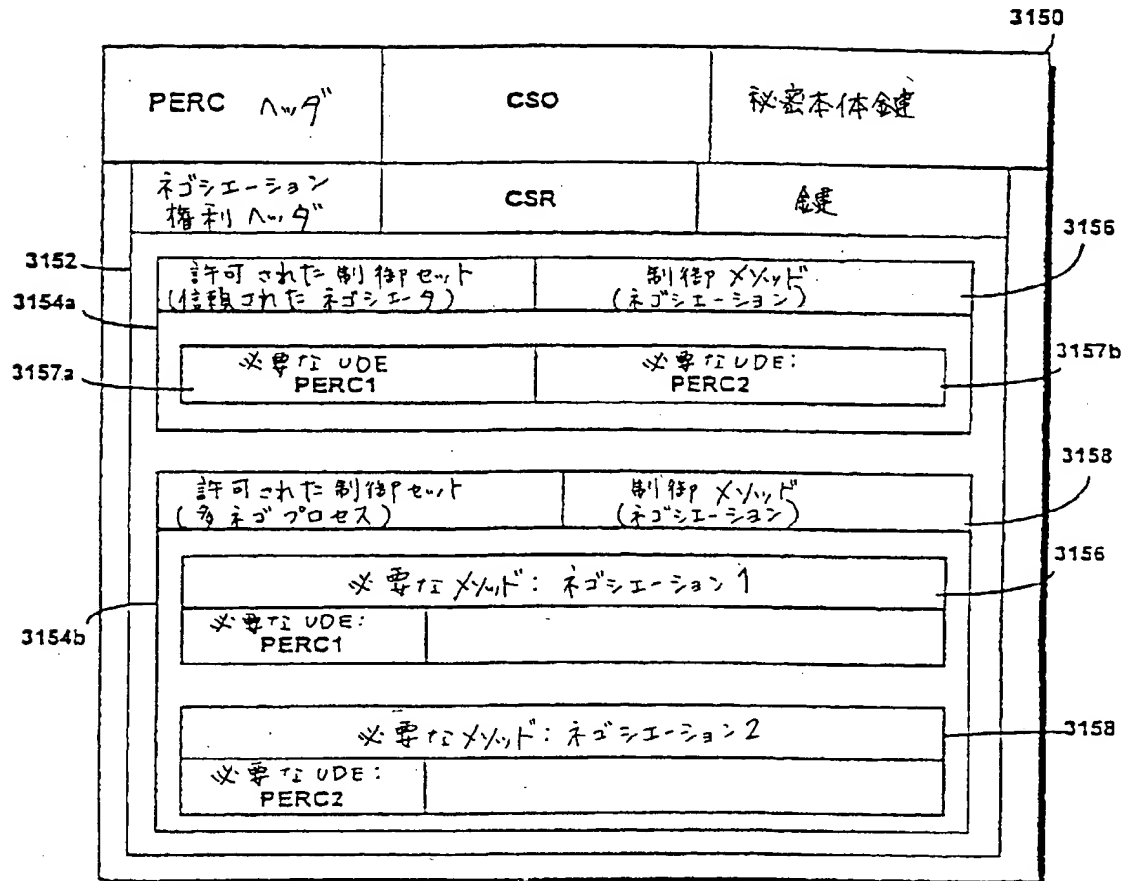 3150
PERC ヘッダ
CSO
秘密本体鍵
ネゴシエーション
権利ヘッダ
CSR
鍵
3156
3152
許可された制御セット
(信頼されたネゴシエータ)
制御メソッド:
(ネゴシエーション)
3154a
3157a
必要なUDE
PERC1
必要なUDE:
PERC2
3157b
3158
許可された制御セット
(多ネゴプロセス)
制御メソッド
(ネゴシエーション)
3156
必要なメソッド: ネゴシエーション1
3154b
必要なUDE:
PERC1
必要なメソッド: ネゴシエーション2
3158
必要なUDE:
PERC2